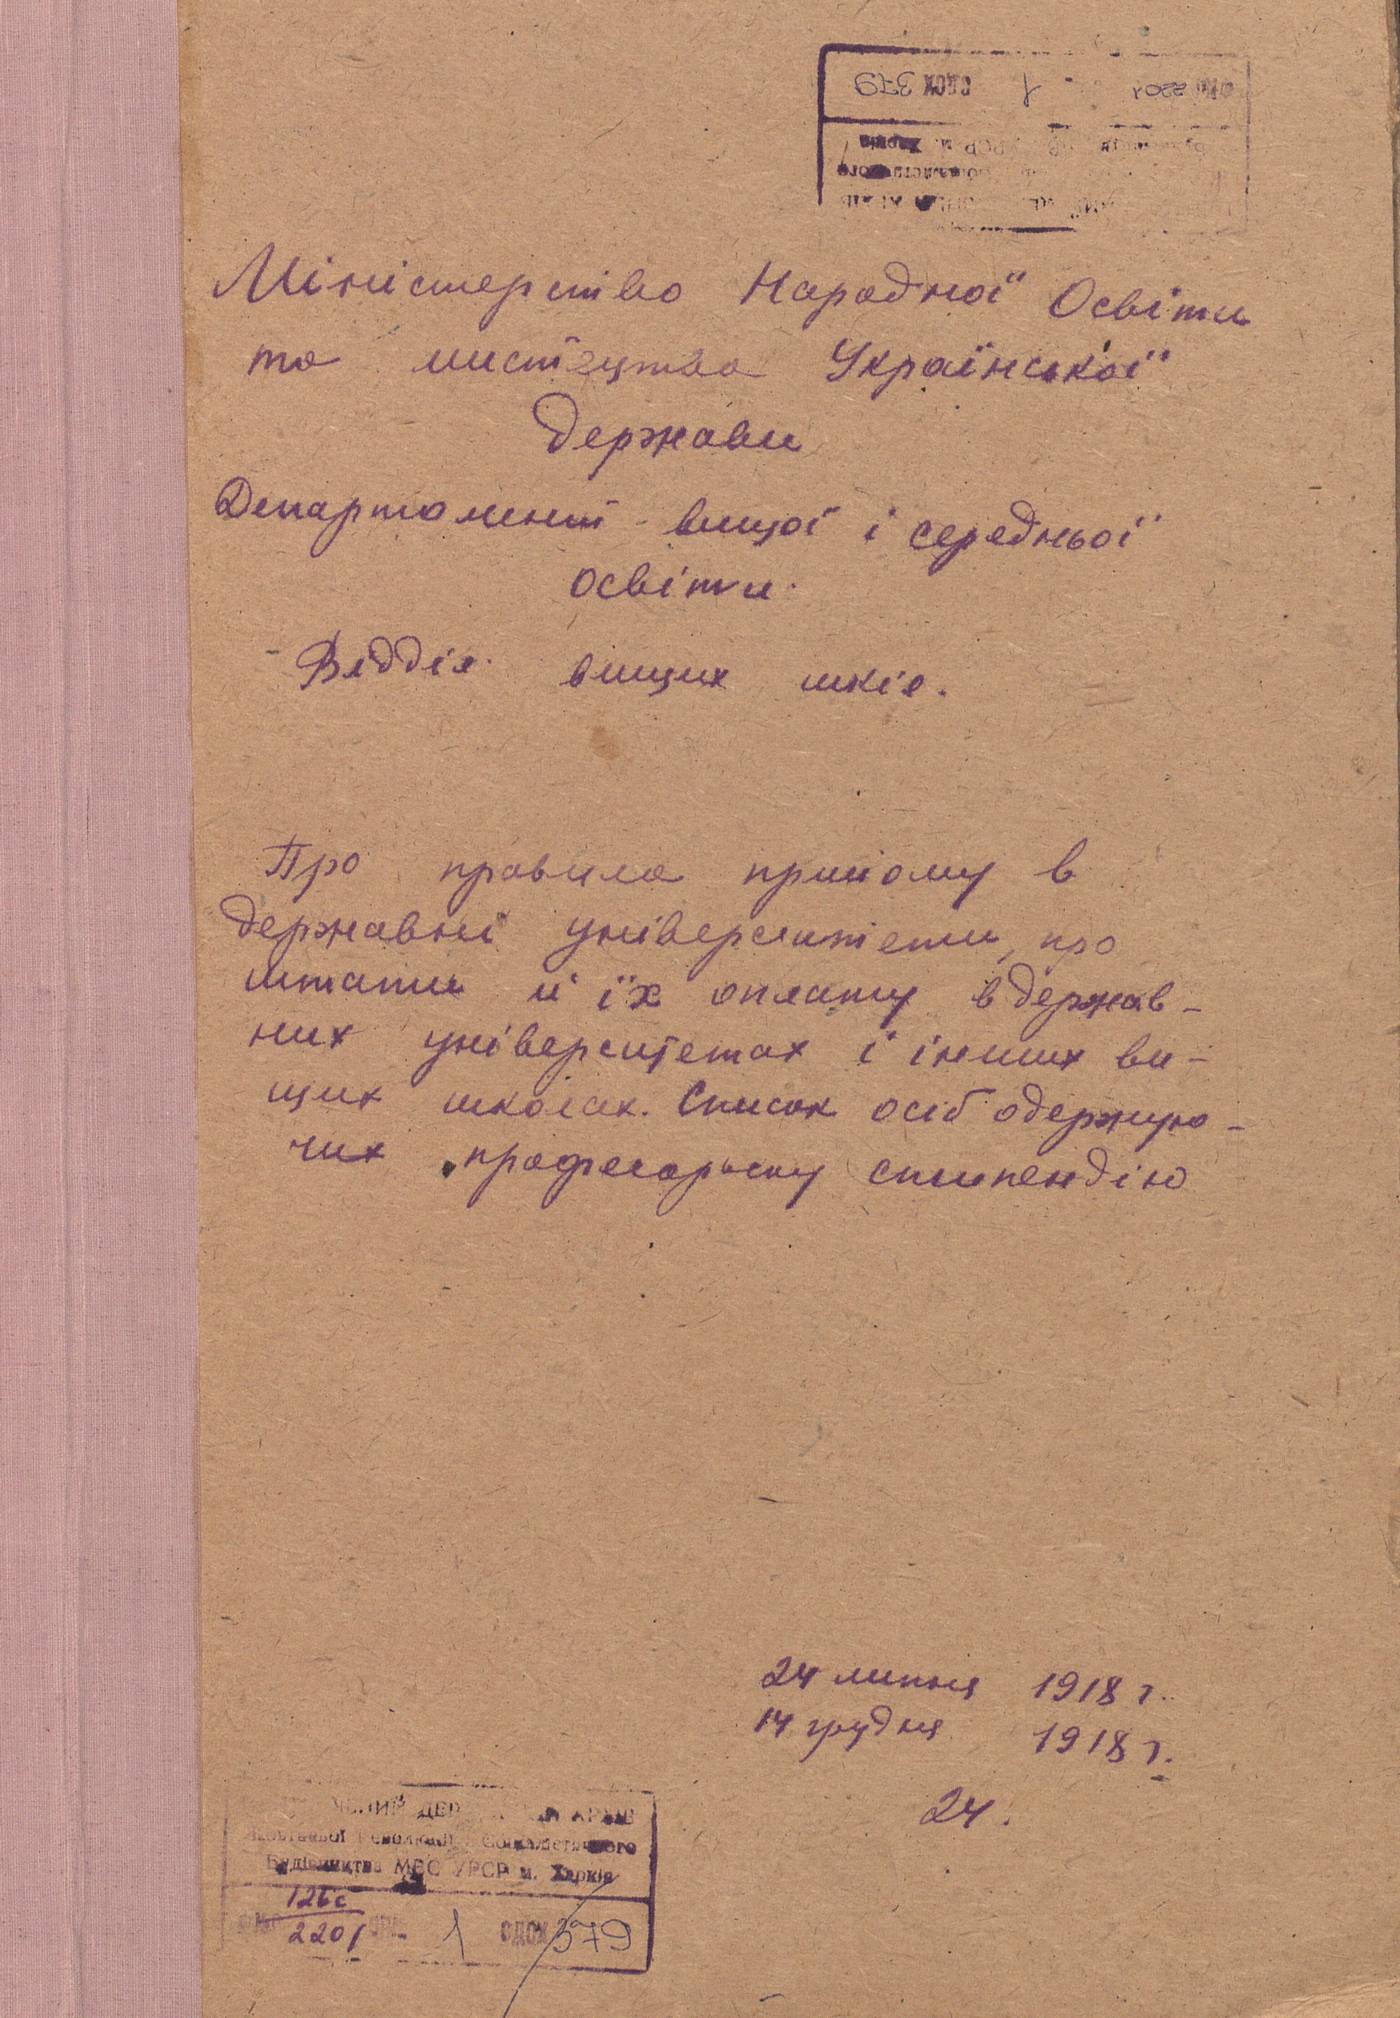 2201 1 СПСК 379
Міністерство Народної Освіти
та мистецтва Української
Держави
Департамент вищої і середньої
освіти.
Відділ вищих шкіл.
Про правила прийому в
державні університети, про
штати й їх оплату в держав-
них університетах і інших ви-
щих школах. Список осіб одержую-
чих професорську стипендію
24 липня 1918 г.
14 грудня 1918 г.
24.
АРХІВ
Жовтневої Революції і Соціалістичного
Будівництва МВС УРСР м. Харків
126с
2201 1 379